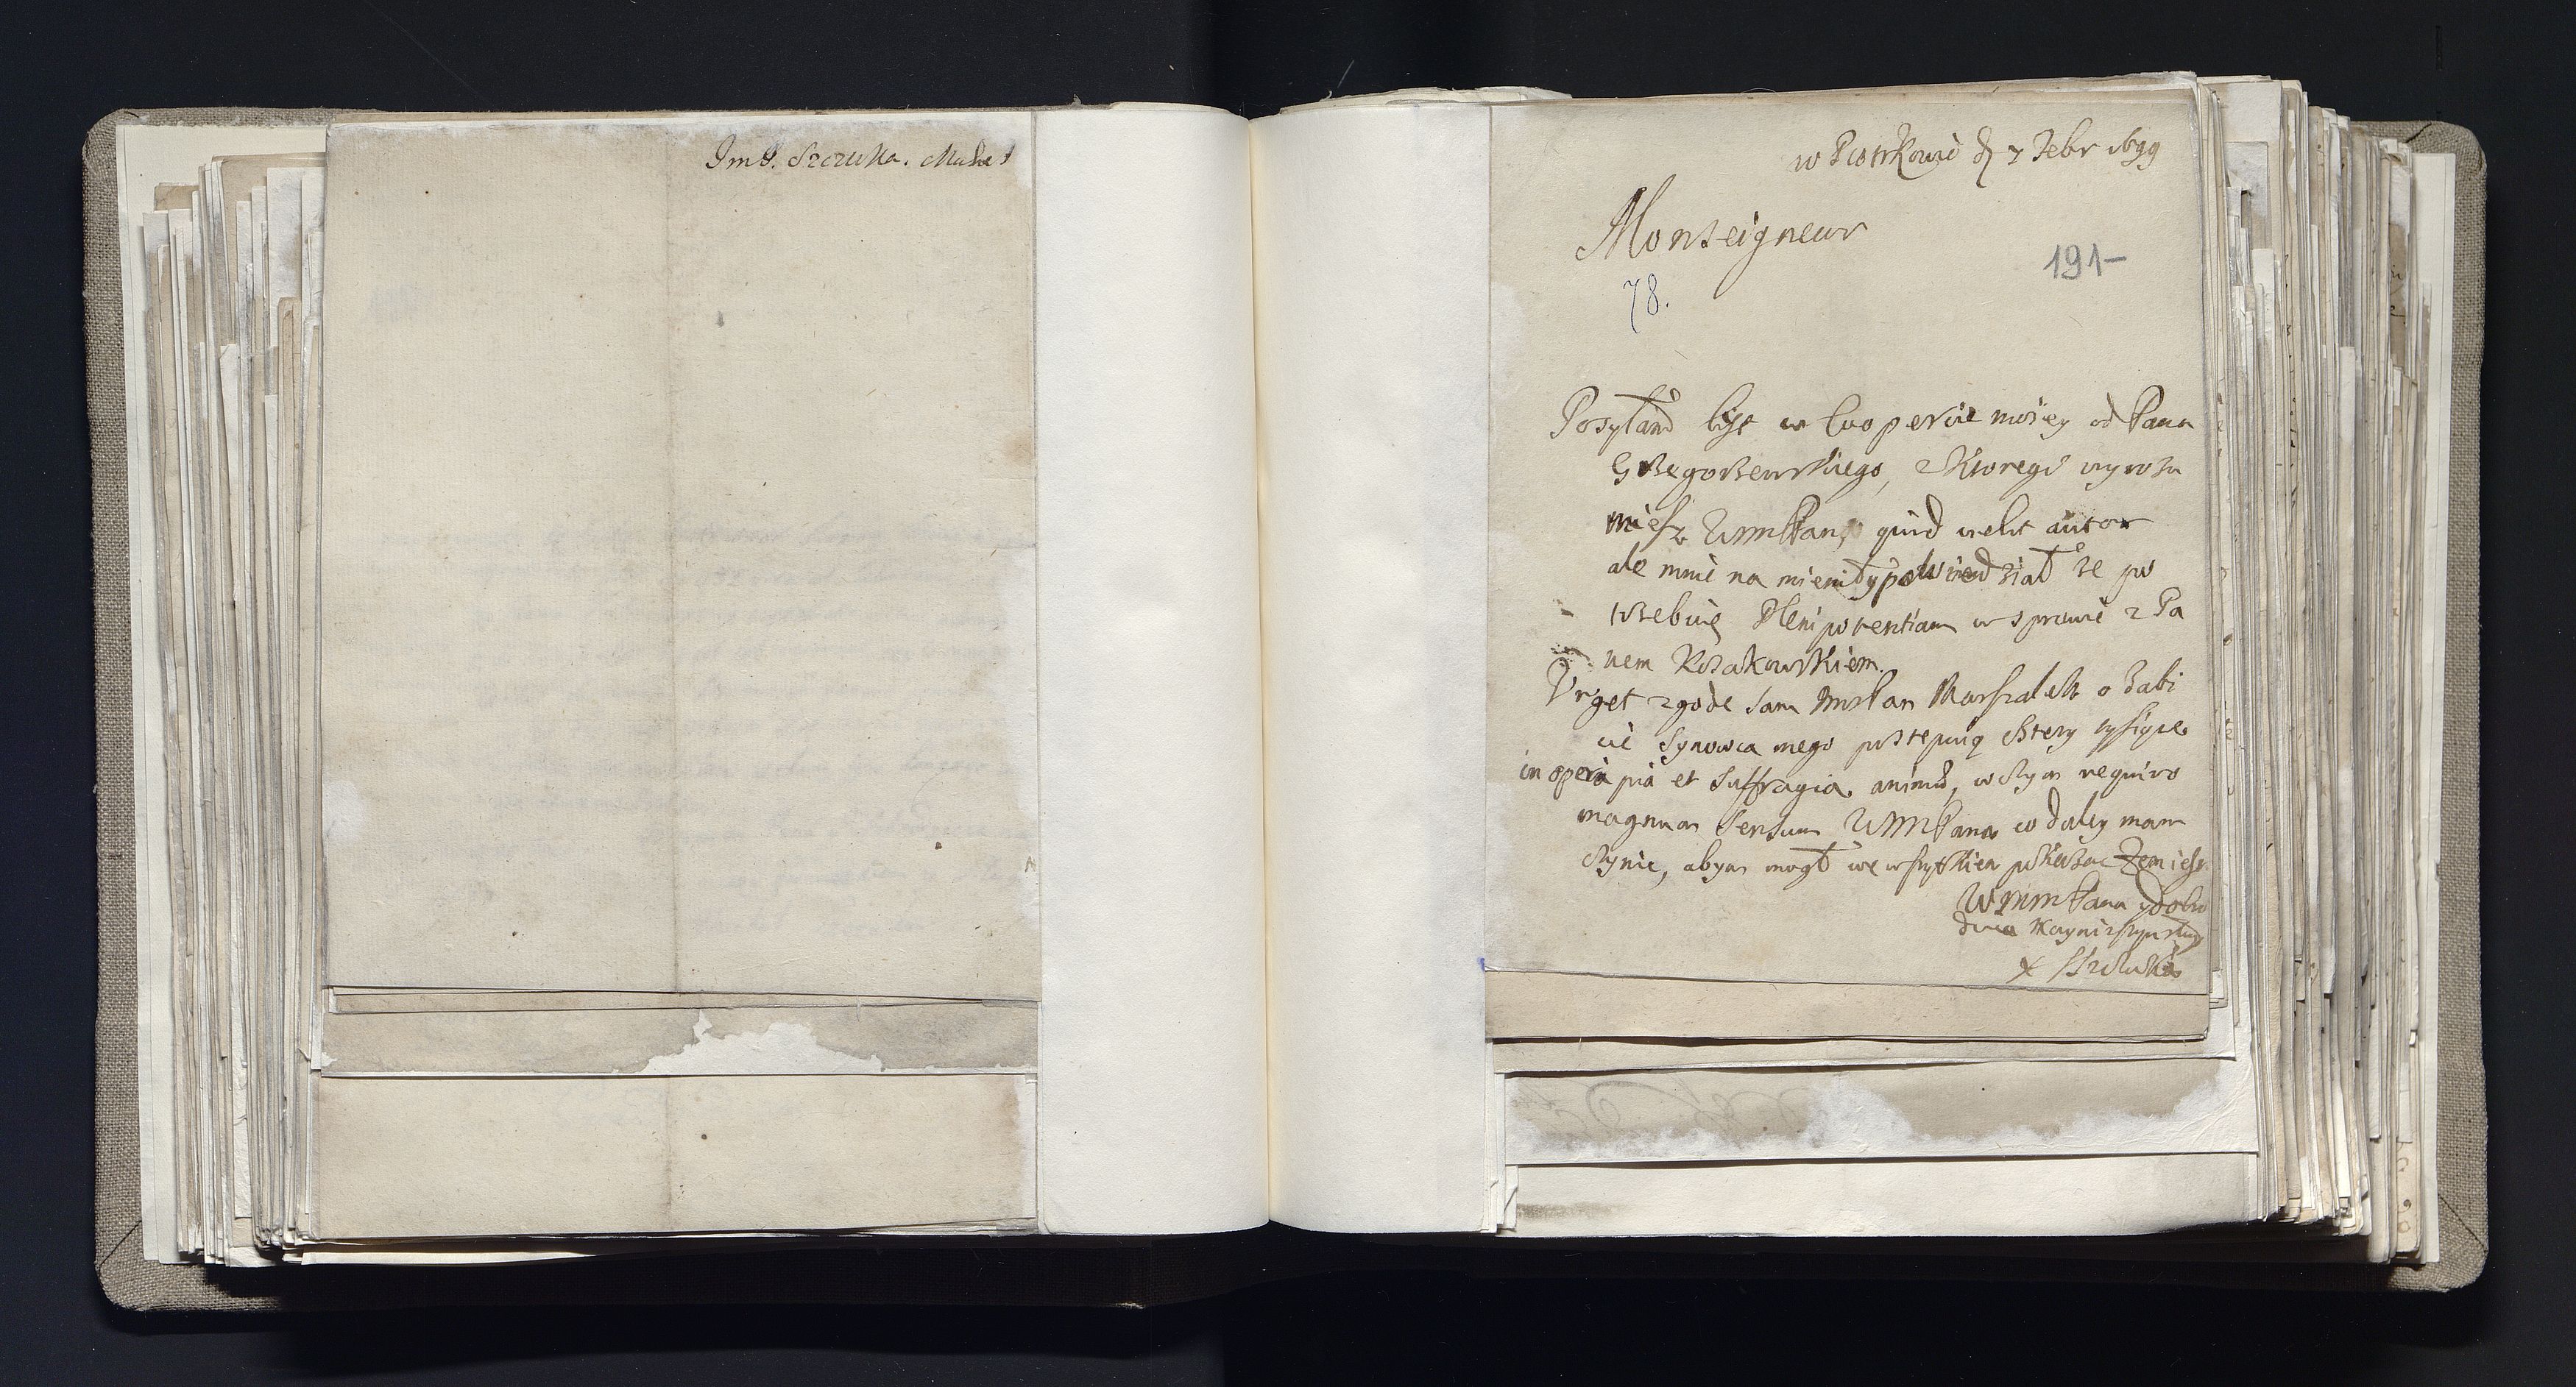 Im P. Szczuka.
w Piotrkowie d 7 Febr 1699
Monseigneur
191-
78.
Posyłam list w Coopercie moiey od Pana
Grzegorzewskiego, z ktorego wyrozu
miesz WmmPan, quid velit autor
ale mnie na mienił y powiedział ze po
trzebuię Plenipotentiam w sprawie z Pa
nem Kosakowskiem.
Urget zgode sam ImPan Marszalek o zabi
cie Synowca mego postępuią cztery tysiące
in opera pia et Suffragia animæ, w czym requiro
magnum sensum WMMPana co daley mam
czynic, abym mogł we wszytkiem pokazac Żem iest
WMMPana y Dobro
dzieia Nayniższym sługą
X Szczuka